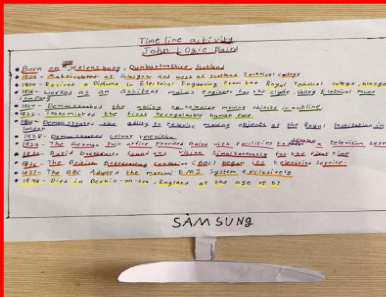 Time line activity
John Logie Baird
Born on Helensburg, Dunbartonshire, Scotland
- Matriculated at Glasgow and west of Scotland Technical college
1914 - Recived a Diploma in Electrical Engineering from the Royal Technical college, Glasgow
- worked as an assistant mains Engineer for the clyde Vally Electrical power
company
- Demonstrated the ability to televise moving objects in outline
- Transmitted the first Recognizable human face
- Demonstrated the ability to televise moving objects at the Royal Institution in
London
- Demonstrated colour television
1929 - The German post office provided Baird with facilities to a television service
1930 - Baird Broadcasts sound and vision Simultaneously for the first time
- The British Broadcasting (BBC) began its television service
- The BBC Adopted the marconi EMI System exclusively
1946 - Dies in Bexhill-on-sea, England at the age of 57
SAMSUNG